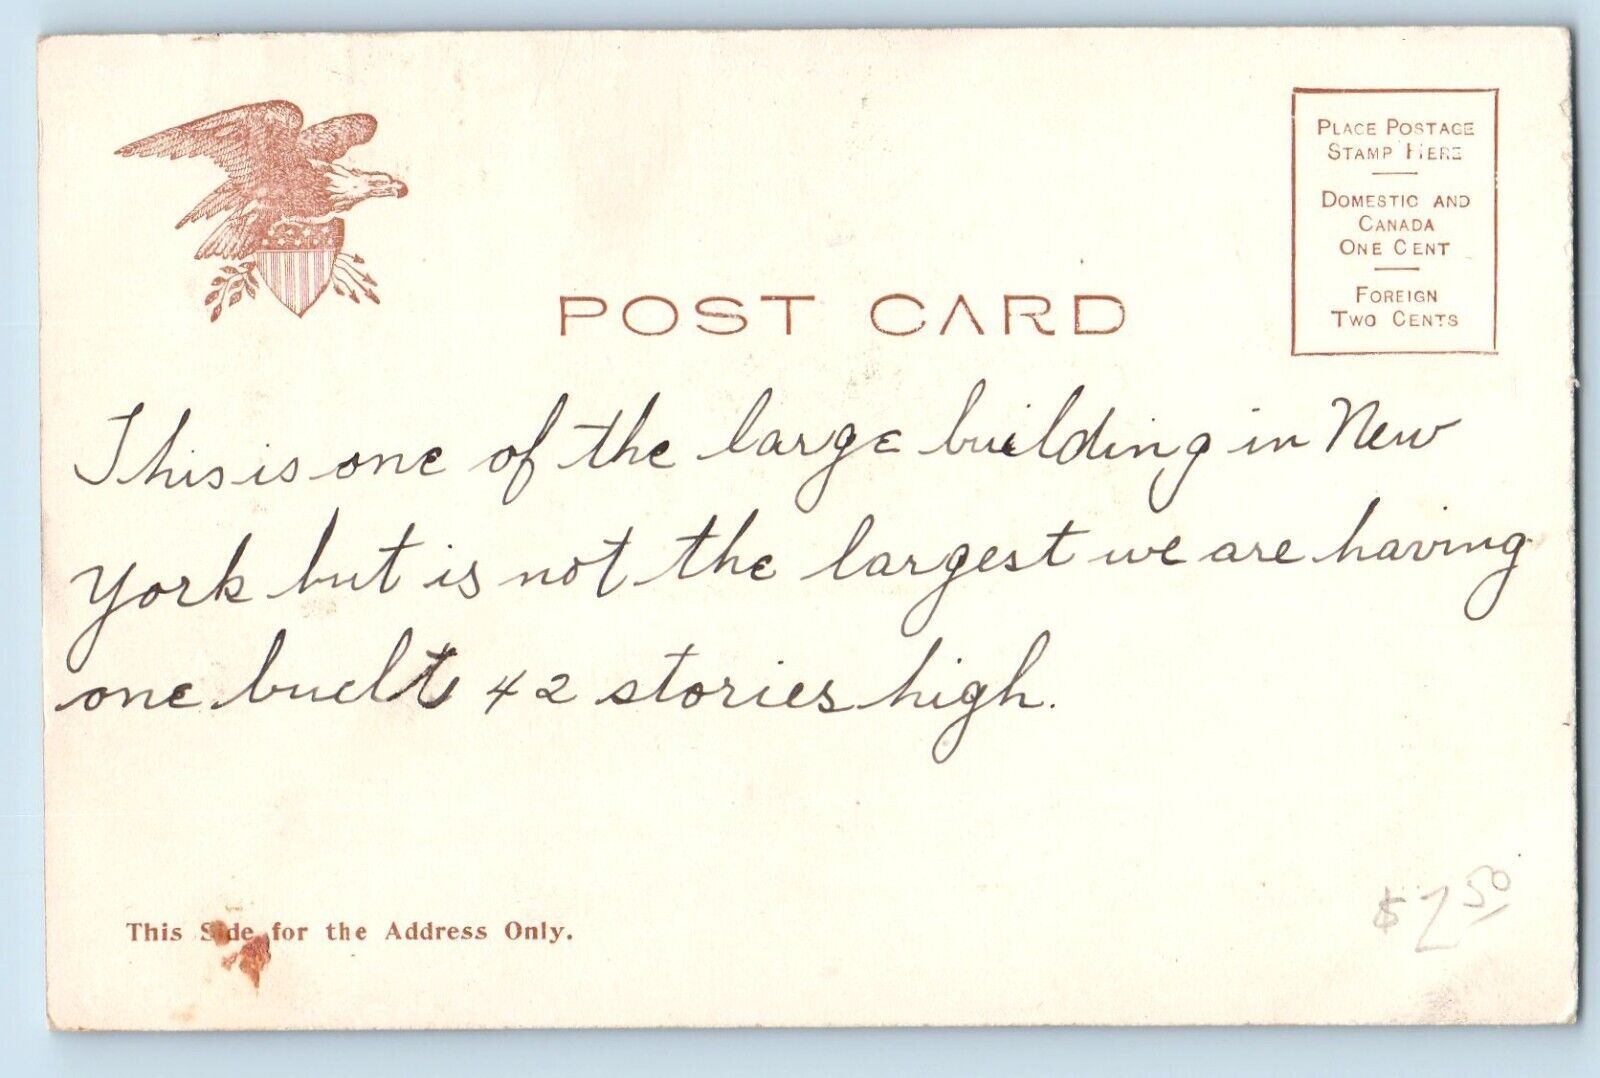 PLACE POSTAGE
STAMP HERE
DOMESTIC AND
CANADA
ONE CENT
FOREIGN
TWO CENTS
POST CARD
This is one of the large building in New
York but is not the largest we are having
one buelt 42 stories high.
This Side for the Address Only.
$2.50